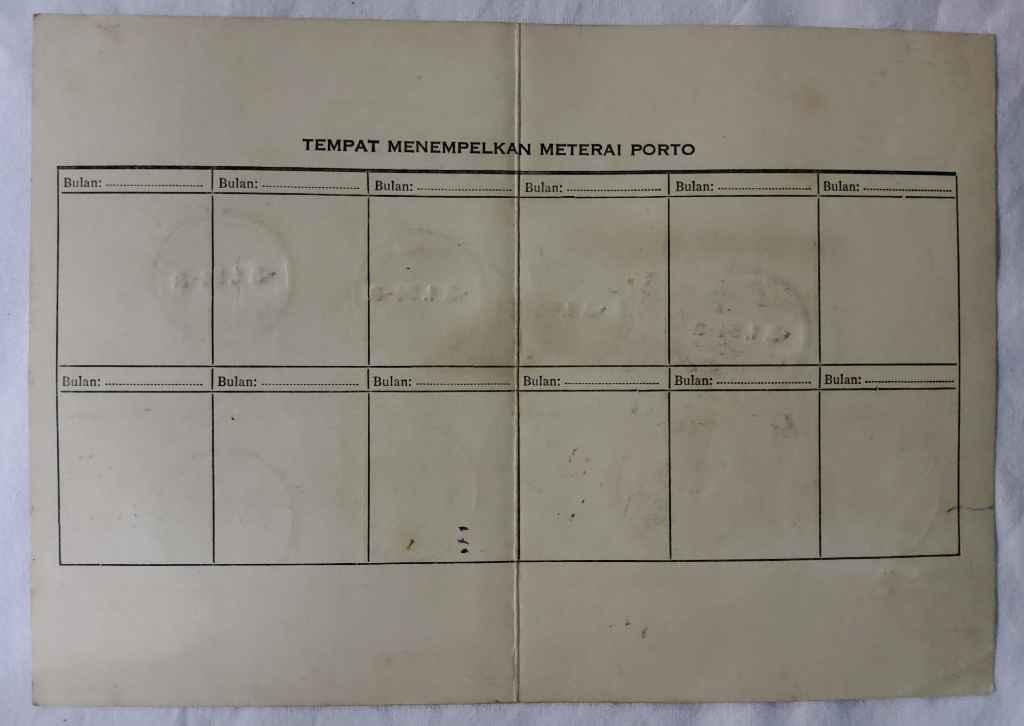 TEMPAT MENEMPELKAN METERAI PORTO
Bulan: Bulan: Bulan: Bulan: Bulan: Bulan:
Bulan: Bulan: Bulan: Bulan: Bulan: Bulan: